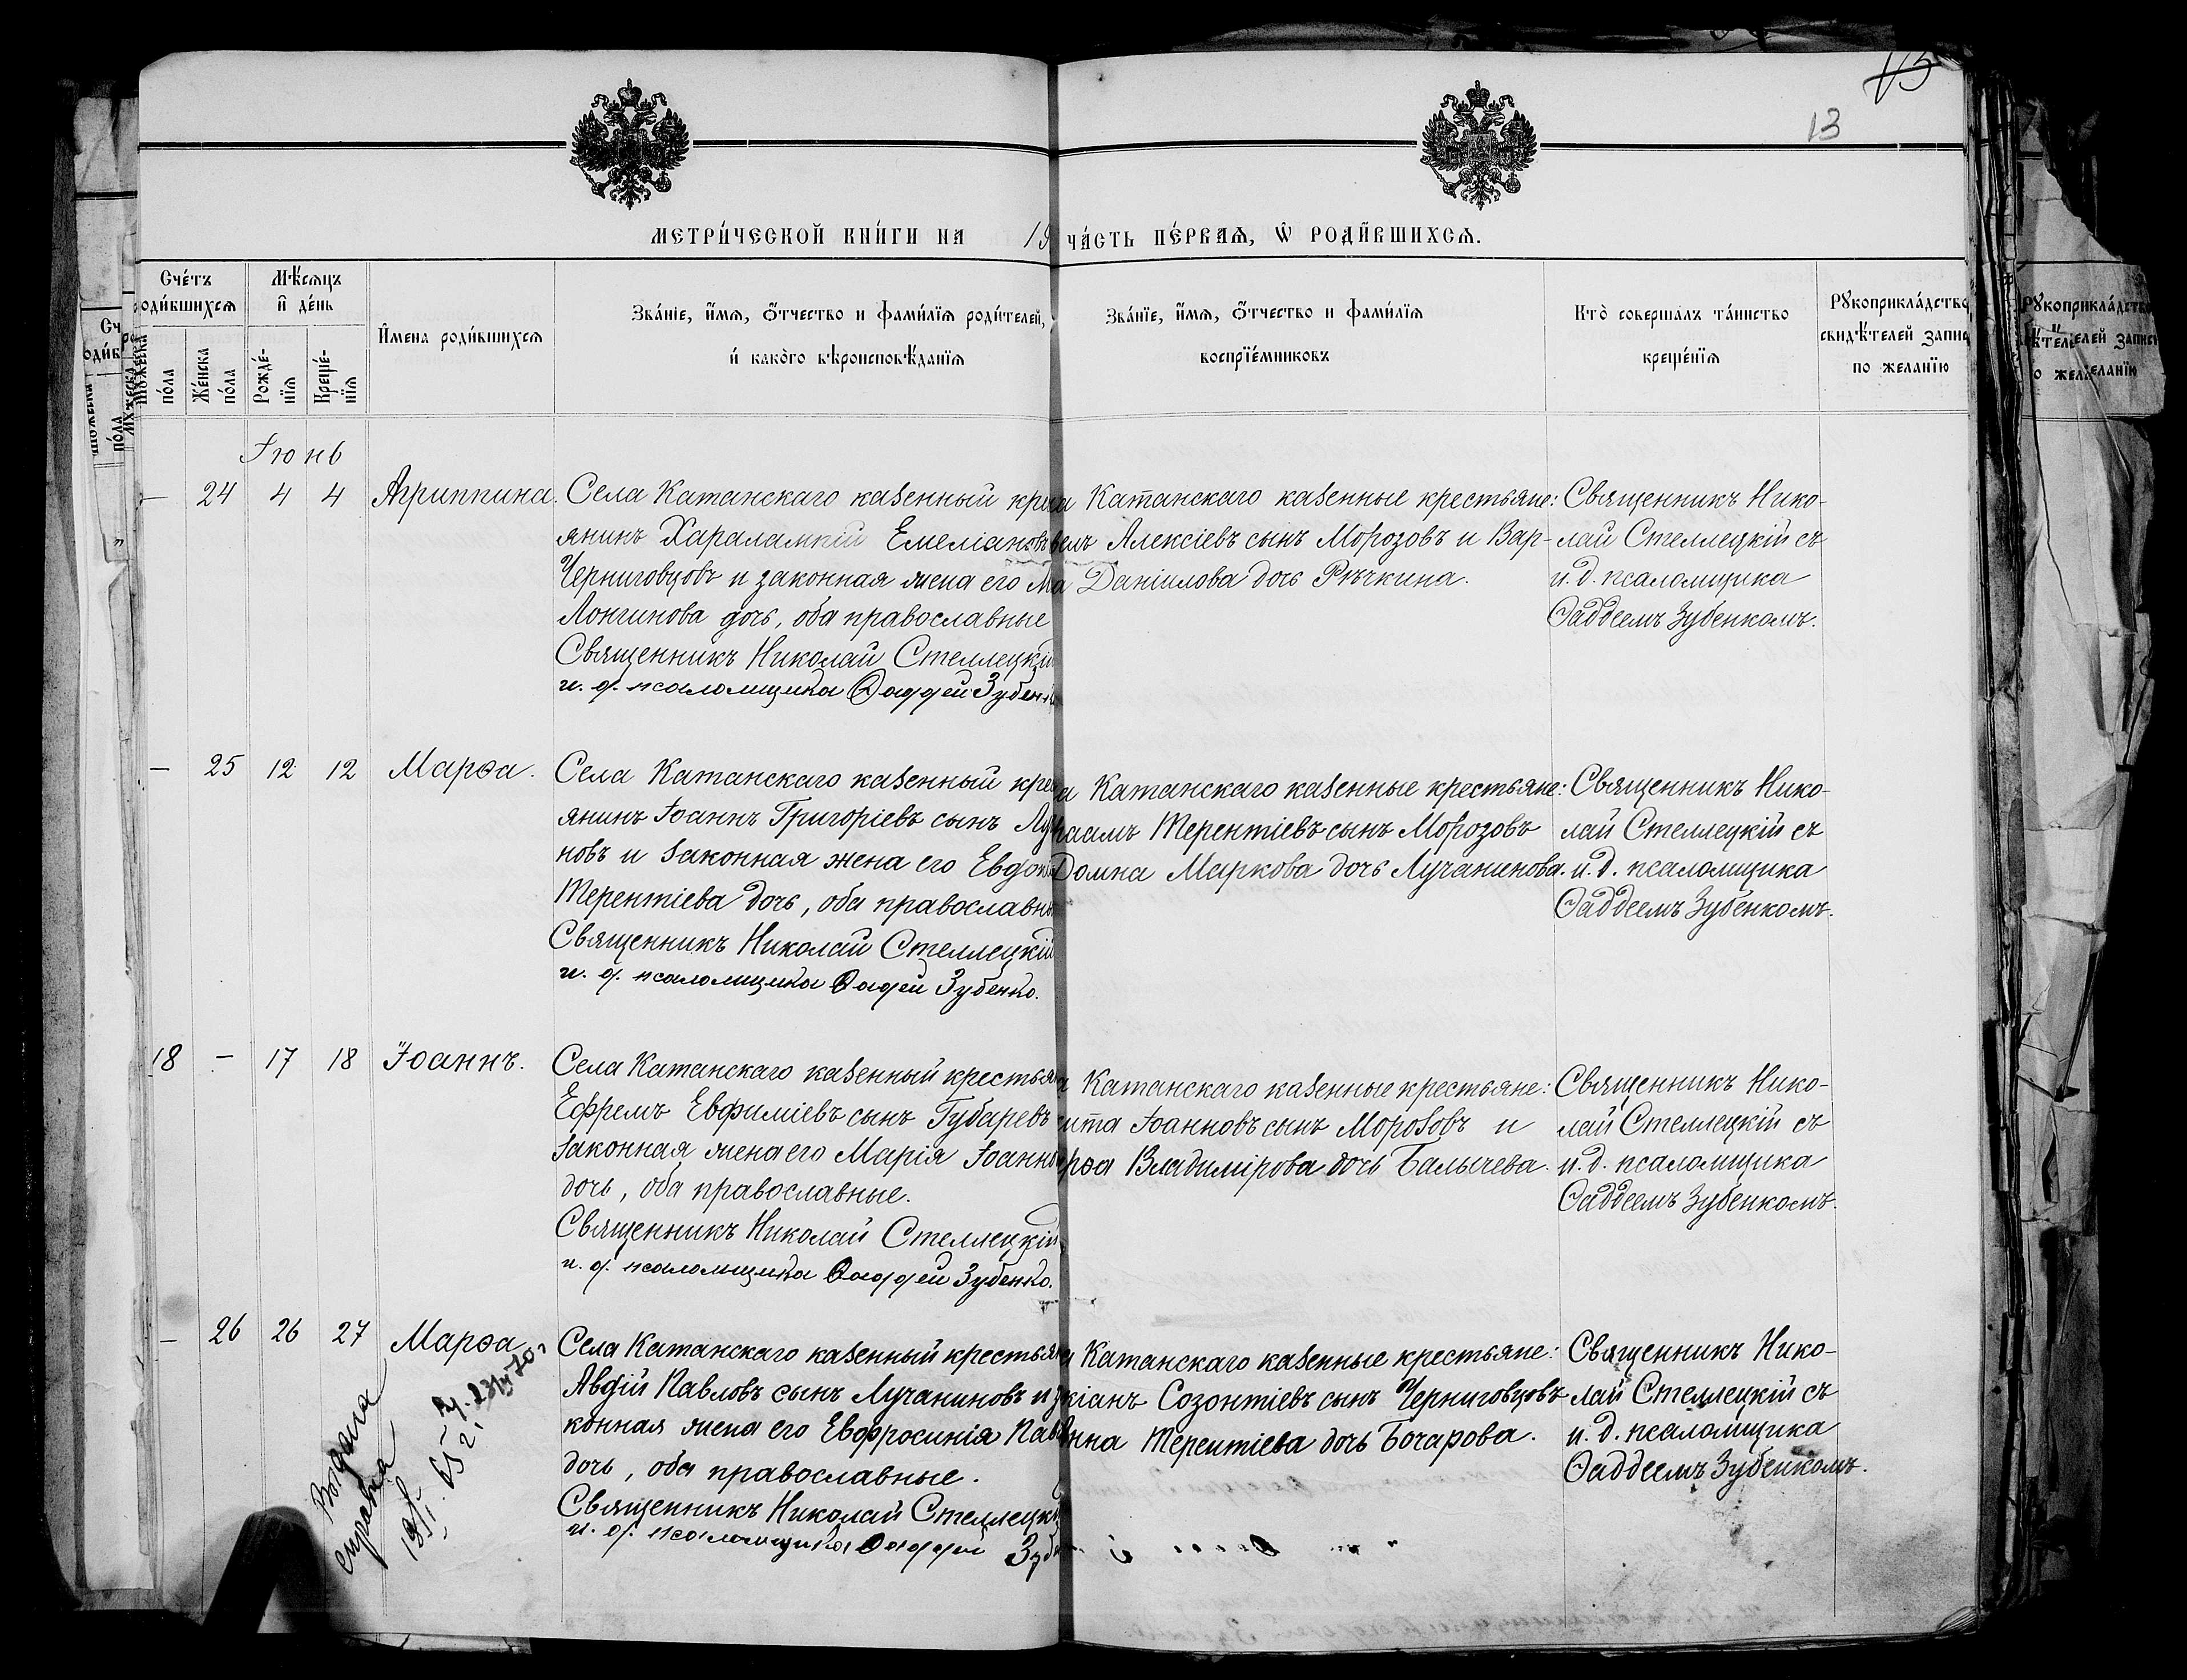 13
МЕТРИ́ЧЕСКОЙ КНИ́ГИ НА 19 ЧА́СТЬ ПЕ́РВАѦ, Ѡ РОДИ́ВШИХСѦ.
Сче́тъ родившихсѧ
Мѣ́сѧцъ и де́нь
Имена родившихсѧ
Зва́нїе, и́мѧ, ѻ́тчество и фами́лїѧ роди́телей, и како́гѡ вѣроисповѣ́данїѧ
Зва́нїе, и́мѧ, ѻ́тчество и фами́лїѧ воспрїе́мниковъ
Кто̀ соверша́лъ та́инство креще́нїѧ
Рꙋкоприкла́дство свидѣ́телей запис по желанїю
Же́нска по́ла
Рожде́нїѧ
Креще́нїѧ
Іюнь
— 24 4 4 Агриппина.
Села Катанскаго казенный кре
янинъ Харалампій Емеліановъ
Черниговцовъ и законная жена его Ма
Лонгинова дочь, оба православные
Священникъ Николай Стеллецкій
и. д. псаломщика Ѳаддей Зубен
а Катанскаго казенные крестьяне:
велъ Алексіевъ сынъ Морозовъ и Вар-
а Даніилова дочь Рѣчкина.
Священникъ Нико-
лай Стеллецкій съ
и. д. псаломщика
Ѳаддеемъ Зубенкомъ.
— 25 12 12 Марѳа.
Села Катанскаго казенный крес
янинъ Іоаннъ Григоріевъ сынъ Луч
новъ и законная жена его Евдок
Терентіева дочь, оба православны
Священникъ Николай Стеллецкій
и. д. псаломщика Ѳадей Зубенко.
а Катанскаго казенные крестьяне:
раамъ Терентіевъ сынъ Морозовъ
Домна Маркова дочь Лучанинова.
Священникъ Нико-
лай Стеллецкій съ
и. д. псаломщика
Ѳаддеемъ Зубенкомъ.
18 — 17 18 Іоаннъ.
Села Катанскаго казенный крестьян
Ефремъ Евфиміевъ сынъ Губаревъ
законная жена его Марія Іоанно
дочь, оба православные.
Священникъ Николай Стеллецкій
и. д. псаломщика Ѳаддей Зубенко.
а Катанскаго казенные крестьяне:
кита Іоанновъ сынъ Морозовъ и
рѳа Владимірова дочь Балычева.
Священникъ Нико-
лай Стеллецкій съ
и. д. псаломщика
Ѳаддеемъ Зубенкомъ.
— 26 26 27 Марѳа
Выдана
справка
Села Катанскаго казенный крестьян
Авдій Павловъ сынъ Лучаниновъ и з
конная жена его Евфросинія Пав
дочь, оба православные.
Священникъ Николай Стеллецкі
и. д. псаломщика Ѳаддей Зуб
а Катанскаго казенные крестьяне:
кіанъ Созонтіевъ сынъ Черниговцовъ
нна Терентіева дочь Бочарова.
Священникъ Нико-
лай Стеллецкій съ
и. д. псаломщика
Ѳаддеемъ Зубенкомъ.